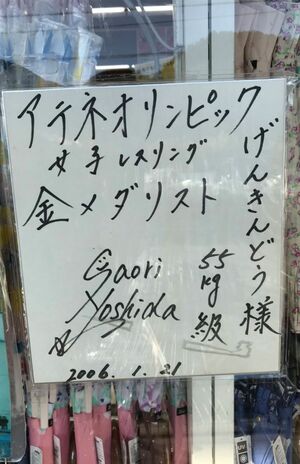 アテネオリンピック
女子レスリング
金メダリスト
げんきんどう様
Saori
Yoshida
55
kg
級
2006. 1. 21
UV